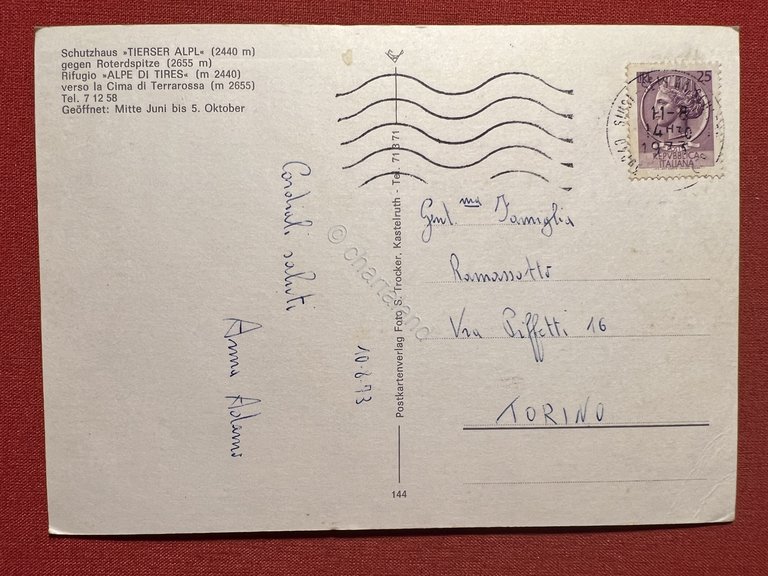 Schutzhaus »TIERSER ALPL« (2440 m)
gegen Roterdspitze (2655 m)
Rifugio »ALPE DI TIRES« (m 2440)
verso la Cima di Terrarossa (m 2655)
Tel. 7 12 58
Geöffnet: Mitte Juni bis 5. Oktober
Cordiali saluti
Anna Adamo
10-8-73
Postkartenverlag Foto S. Trocker, Kastelruth - Tel. 71 3 71
144
© chartaland
25
11-8
1973
REPVBBLICA
ITALIANA
Gent.ma Famiglia
Ramassotto
Via Piffetti 16
TORINO